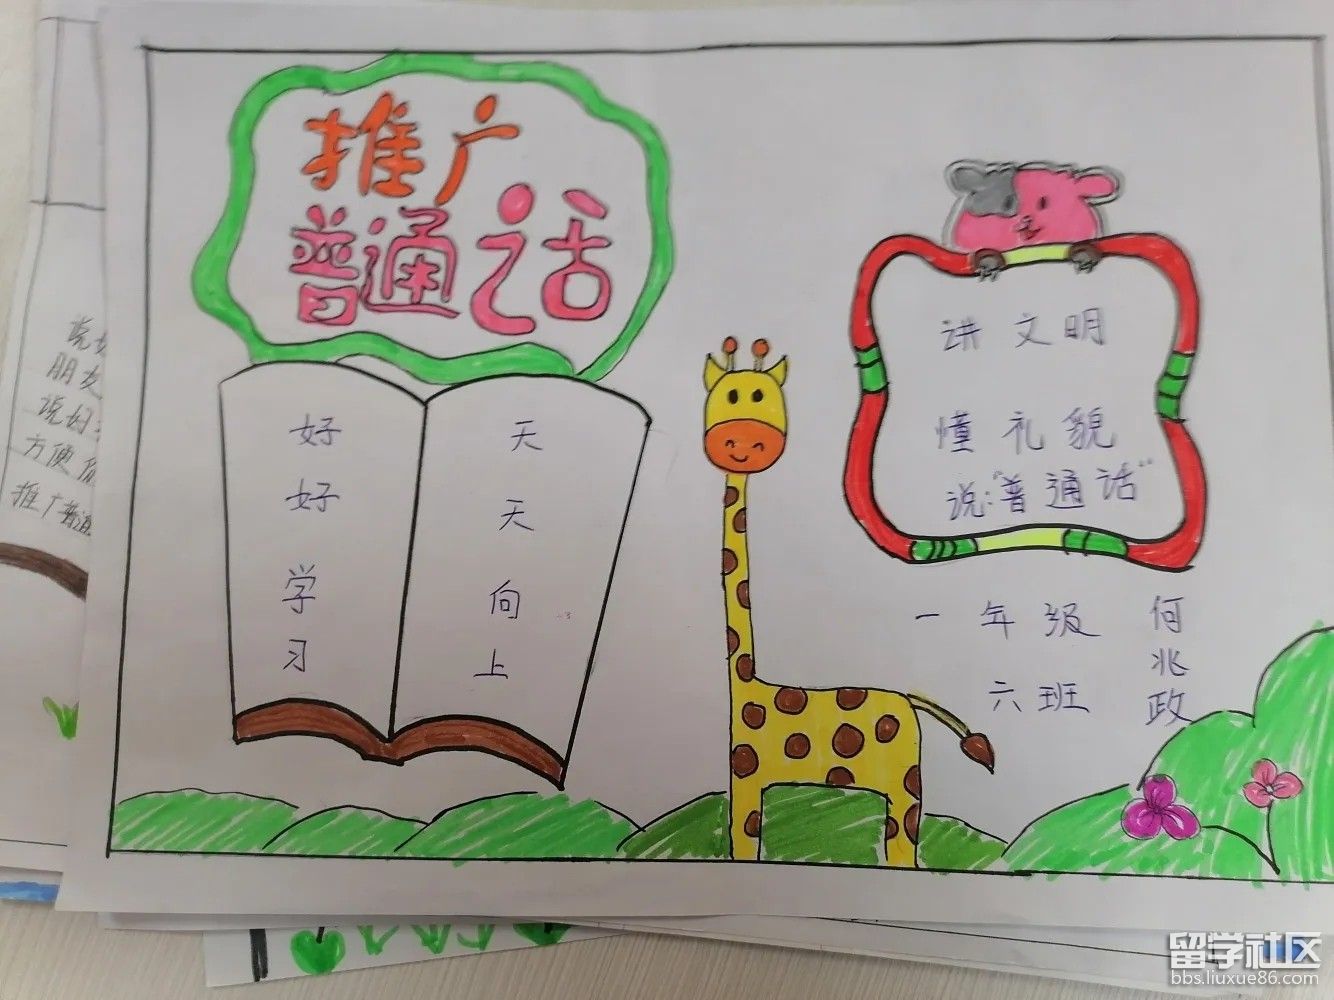 推广
普通话
好好学习
天天向上
讲文明
懂礼貌
说:"普通话"
一年级
六班
何兆政
说好
朋友
说好
方便
推广普通
留学社区
bbs.liuxue86.com